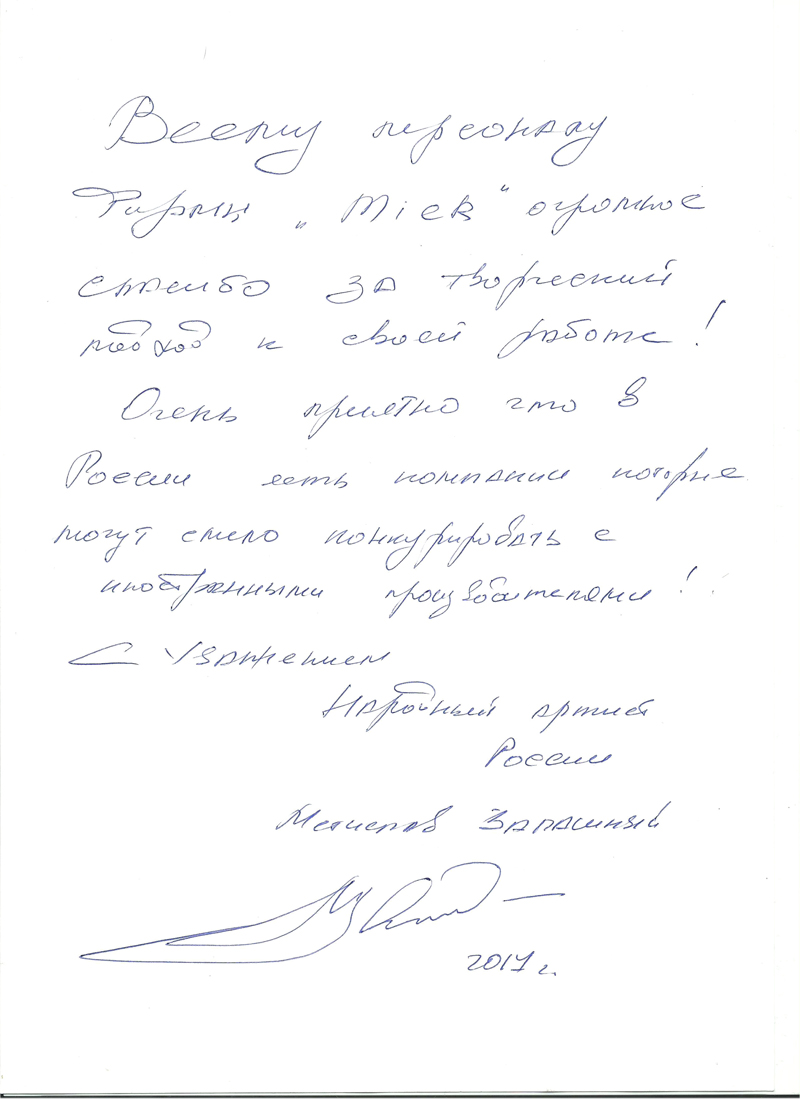 Всему персоналу
Фирмы „Miek“ огромное
спасибо за творческий
подход к своей работе!
Очень приятно что в
России есть компании которые
могут смело конкурировать с
иностранными производителями!
С Уважением
Народный артист
России
Мстислав Запашный
2017 г.